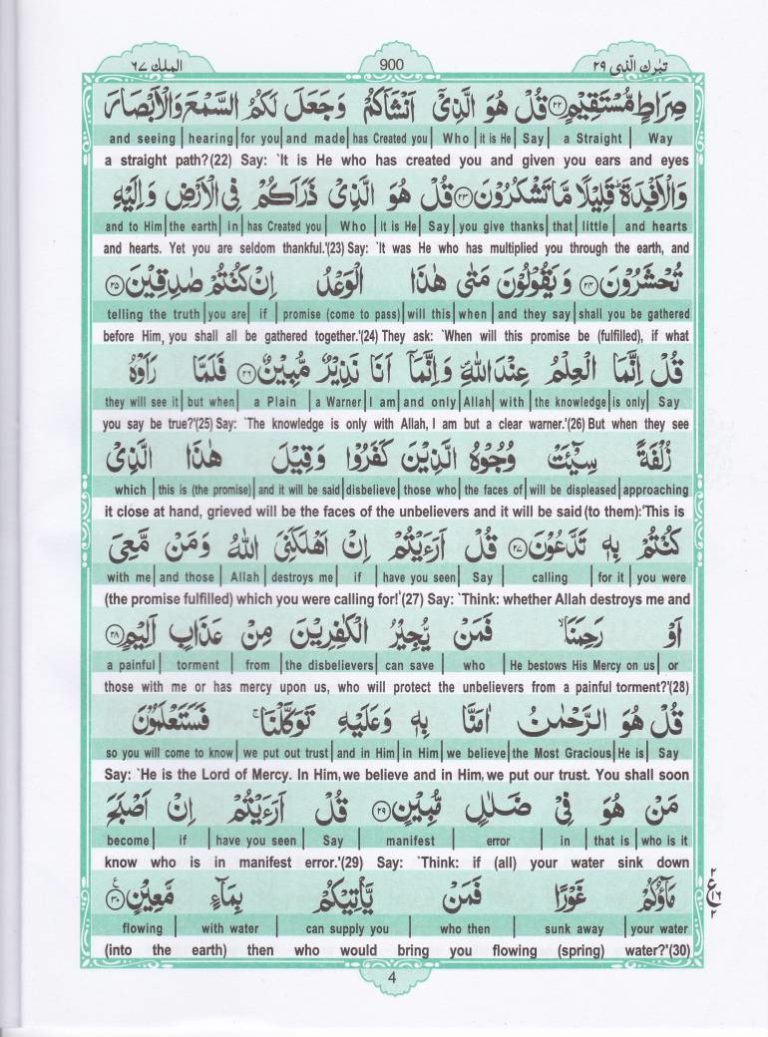 تبٰرك الّذی ٢٩ 900 الملك ٦٧
صِرَاطٍ مُّسْتَقِيْمٍ ۝٢٢ قُلْ هُوَ الَّذِيْۤ اَنْشَاَكُمْ وَجَعَلَ لَكُمُ السَّمْعَ وَالْاَبْصَارَ
and seeing | hearing | for you | and made | has Created you | Who | it is He | Say | a Straight | Way
a straight path?(22) Say: `It is He who has created you and given you ears and eyes
وَالْاَفْـِٕدَةَ ؕ قَلِيْلًا مَّا تَشْكُرُوْنَ ۝٢٣ قُلْ هُوَ الَّذِيْ ذَرَاَكُمْ فِى الْاَرْضِ وَاِلَيْهِ
and to Him | the earth | in | has Created you | Who | it is He | Say | you give thanks | that | little | and hearts
and hearts. Yet you are seldom thankful.'(23) Say: `It was He who has multiplied you through the earth, and
تُحْشَرُوْنَ ۝٢٤ وَيَقُوْلُوْنَ مَتٰى هٰذَا الْوَعْدُ اِنْ كُنْتُمْ صٰدِقِيْنَ ۝٢٥
telling the truth | you are | if | promise (come to pass) | will this | when | and they say | shall you be gathered
before Him, you shall all be gathered together.'(24) They ask: `When will this promise be (fulfilled), if what
قُلْ اِنَّمَا الْعِلْمُ عِنْدَ اللّٰهِ ۪ وَاِنَّمَاۤ اَنَا نَذِيْرٌ مُّبِيْنٌ ۝٢٦ فَلَمَّا رَاَوْهُ
they will see it | but when | a Plain | a Warner | I am | and only | Allah | with | the knowledge | is only | Say
you say be true?'(25) Say: `The knowledge is only with Allah, I am but a clear warner.'(26) But when they see
زُلْفَةً سِيْٓـَٔتْ وُجُوْهُ الَّذِيْنَ كَفَرُوْا وَقِيْلَ هٰذَا الَّذِيْ
which | this is (the promise) | and it will be said | disbelieve | those who | the faces of | will be displeased | approaching
it close at hand, grieved will be the faces of the unbelievers and it will be said (to them):'This is
كُنْتُمْ بِهٖ تَدَّعُوْنَ ۝٢٧ قُلْ اَرَءَيْتُمْ اِنْ اَهْلَكَنِيَ اللّٰهُ وَمَنْ مَّعِيَ
with me | and those | Allah | destroys me | if | have you seen | Say | calling | for it | you were
(the promise fulfilled) which you were calling for!'(27) Say: `Think: whether Allah destroys me and
اَوْ رَحِمَنَا ۙ فَمَنْ يُّجِيْرُ الْكٰفِرِيْنَ مِنْ عَذَابٍ اَلِيْمٍ ۝٢٨
a painful | torment | from | the disbelievers | can save | who | He bestows His Mercy on us | or
those with me or has mercy upon us, who will protect the unbelievers from a painful torment?'(28)
قُلْ هُوَ الرَّحْمٰنُ اٰمَنَّا بِهٖ وَعَلَيْهِ تَوَكَّلْنَا ۚ فَسَتَعْلَمُوْنَ
so you will come to know | we put out trust | and in Him | in Him | we believe | the Most Gracious | He is | Say
Say: `He is the Lord of Mercy. In Him, we believe and in Him, we put our trust. You shall soon
مَنْ هُوَ فِيْ ضَلٰلٍ مُّبِيْنٍ ۝٢٩ قُلْ اَرَءَيْتُمْ اِنْ اَصْبَحَ
become | if | have you seen | Say | manifest | error | in | that is | who is it
know who is in manifest error.'(29) Say: `Think: if (all) your water sink down
مَآؤُكُمْ غَوْرًا فَمَنْ يَّاْتِيْكُمْ بِمَآءٍ مَّعِيْنٍ ۝٣٠ ع
flowing | with water | can supply you | who then | sunk away | your water
(into the earth) then who would bring you flowing (spring) water?'(30)
4